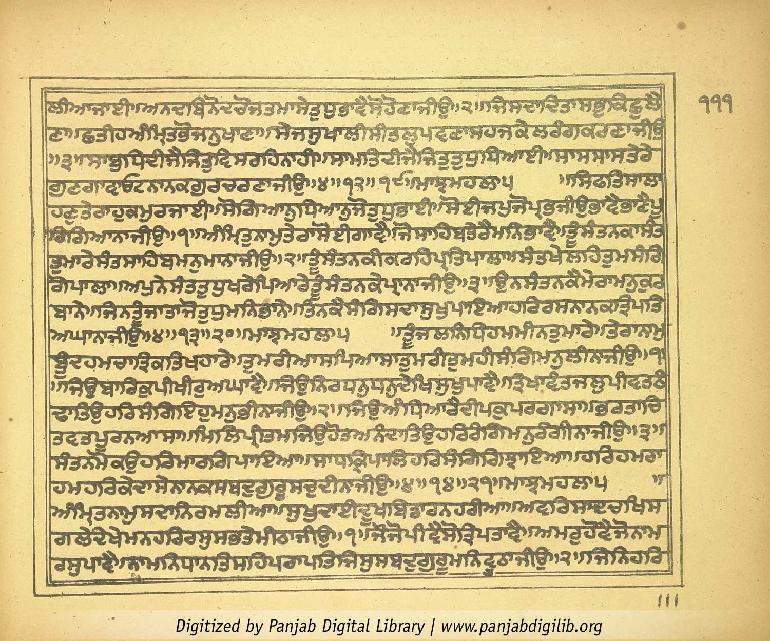 ਲੀਆਜਾਈ॥ਅਨਦਬਿਨੋਦਚੋਜਤਮਾਸੇਤੁਧੁਭਾਵੈਸੋਹੋਣਾਜੀਉ॥੨॥ਜਿਸਦਾਦਿਤਾਸਭੁਕਿਛੁਲੈ
ਣਾ॥ਛਤੀਹਅੰਮ੍ਰਿਤਭੋਜਨੁਖਾਣਾ॥ਸੇਜਸੁਖਾਲੀਸੀਤਲੁਪਵਣਾਸਹਜਕੇਲਰੰਗਕਰਣਾਜੀਉ
॥੩॥ਸਾਬੁਧਿਦੀਜੈਜਿਤੁਵਿਸਰਹਿਨਾਹੀ॥ਸਾਮਤਿਦੀਜੈਜਿਤੁਤੁਧੁਧਿਆਈ॥ਸਾਸਸਾਸਤੇਰੇ
ਗੁਣਗਾਵਾਓਟਨਾਨਕਗੁਰਚਰਣਾਜੀਉ॥੪॥੧੨॥੧੯॥ਮਾਝਮਹਲਾ੫ ॥ਸਿਫਤਿਸਾਲਾ
ਹਣੁਤੇਰਾਹੁਕਮੁਰਜਾਈ॥ਸੋਗਿਆਨੁਧਿਆਨੁਜੋਤੁਧੁਭਾਈ॥ਸੋਈਜਪੁਜੋਪ੍ਰਭਜੀਉਭਾਵੈਭਾਣੈਪੂ
ਰਗਿਆਨਾਜੀਉ॥੧॥ਅੰਮ੍ਰਿਤੁਨਾਮੁਤੇਰਾਸੋਈਗਾਵੈ॥ਜੋਸਾਹਿਬਤੇਰੈਮਨਿਭਾਵੈ॥ਤੂੰਸੰਤਨਕਾਸੰਤ
ਤੁਮਾਰੇਸੰਤਸਾਹਿਬਮਨੁਮਾਨਾਜੀਉ॥੨॥ਤੂੰਸੰਤਨਕੀਕਰਹਿਪ੍ਰਤਿਪਾਲਾ॥ਸੰਤਖੇਲਹਿਤੁਮਸੰਗਿ
ਗੋਪਾਲਾ॥ਅਪੁਨੇਸੰਤਤੁਧੁਖਰੇਪਿਆਰੇਤੂੰਸੰਤਨਕੇਪ੍ਰਾਨਾਜੀਉ॥੩॥ਉਨਸੰਤਨਕੈਮੇਰਾਮਨੁਕੁਰ
ਬਾਨੇ॥ਜਿਨਤੂੰਜਾਤਾਜੋਤੁਧੁਮਨਿਭਾਨੇ॥ਤਿਨਕੈਸੰਗਿਸਦਾਸੁਖੁਪਾਇਆਹਰਿਰਸਨਾਨਕਤ੍ਰਿਪਤਿ
ਅਘਾਨਾਜੀਉ॥੪॥੧੩॥੨੦॥ਮਾਝਮਹਲਾ੫ ॥ਤੂੰਜਲਨਿਧਿਹਮਮੀਨਤੁਮਾਰੇ॥ਤੇਰਾਨਾਮੁ
ਬੂੰਦਹਮਚਾਤ੍ਰਿਕਤਿਖਹਾਰੇ॥ਤੁਮਰੀਆਸਪਿਆਸਾਤੁਮਰੀਤੁਮਹੀਸੰਗਿਮਨੁਲੀਨਾਜੀਉ॥੧
॥ਜਿਉਬਾਰਿਕੁਪੀਖੀਰੁਅਘਾਵੈ॥ਜਿਉਨਿਰਧਨੁਧਨੁਦੇਖਿਸੁਖੁਪਾਵੈ॥ਤ੍ਰਿਖਾਵੰਤਜਲੁਪੀਵਤਠੰ
ਢਾਤਿਉਹਰਿਸੰਗਿਇਹੁਮਨੁਭੀਨਾਜੀਉ॥੨॥ਜਿਉਅੰਧਿਆਰੈਦੀਪਕੁਪਰਗਾਸਾ॥ਭਰਤਾਚਿ
ਤਵਤਪੂਰਨਆਸਾ॥ਮਿਲਿਪ੍ਰੀਤਮਜਿਉਹੋਤਅਨੰਦਾਤਿਉਹਰਿਰੰਗਿਮਨੁਰੰਗੀਨਾਜੀਉ॥੩॥
ਸੰਤਨਮੋਕਉਹਰਿਮਾਰਗਿਪਾਇਆ॥ਸਾਧਕ੍ਰਿਪਾਲਿਹਰਿਸੰਗਿਗਿਝਾਇਆ॥ਹਰਿਹਮਰਾ
ਹਮਹਰਿਕੇਦਾਸੇਨਾਨਕਸਬਦੁਗੁਰੂਸਚੁਦੀਨਾਜੀਉ॥੪॥੧੪॥੨੧॥ਮਾਝਮਹਲਾ੫ ॥
ਅੰਮ੍ਰਿਤਨਾਮੁਸਦਾਨਿਰਮਲੀਆ॥ਸੁਖਦਾਈਦੂਖਬਿਡਾਰਨਹਰੀਆ॥ਅਵਰਿਸਾਦਚਖਿਸ
ਗਲੇਦੇਖੇਮਨਹਰਿਰਸੁਸਭਤੇਮੀਠਾਜੀਉ॥੧॥ਜੋਜੋਪੀਵੈਸੋਤ੍ਰਿਪਤਾਵੈ॥ਅਮਰੁਹੋਵੈਜੋਨਾਮ
ਰਸੁਪਾਵੈ॥ਨਾਮਨਿਧਾਨਤਿਸਹਿਪਰਾਪਤਿਜਿਸੁਸਬਦੁਗੁਰੂਮਨਿਵੂਠਾਜੀਉ॥੨॥ਜਿਨਿਹਰਿ
੧੧੧
111
Digitized by Panjab Digital Library | www.panjabdigilib.org